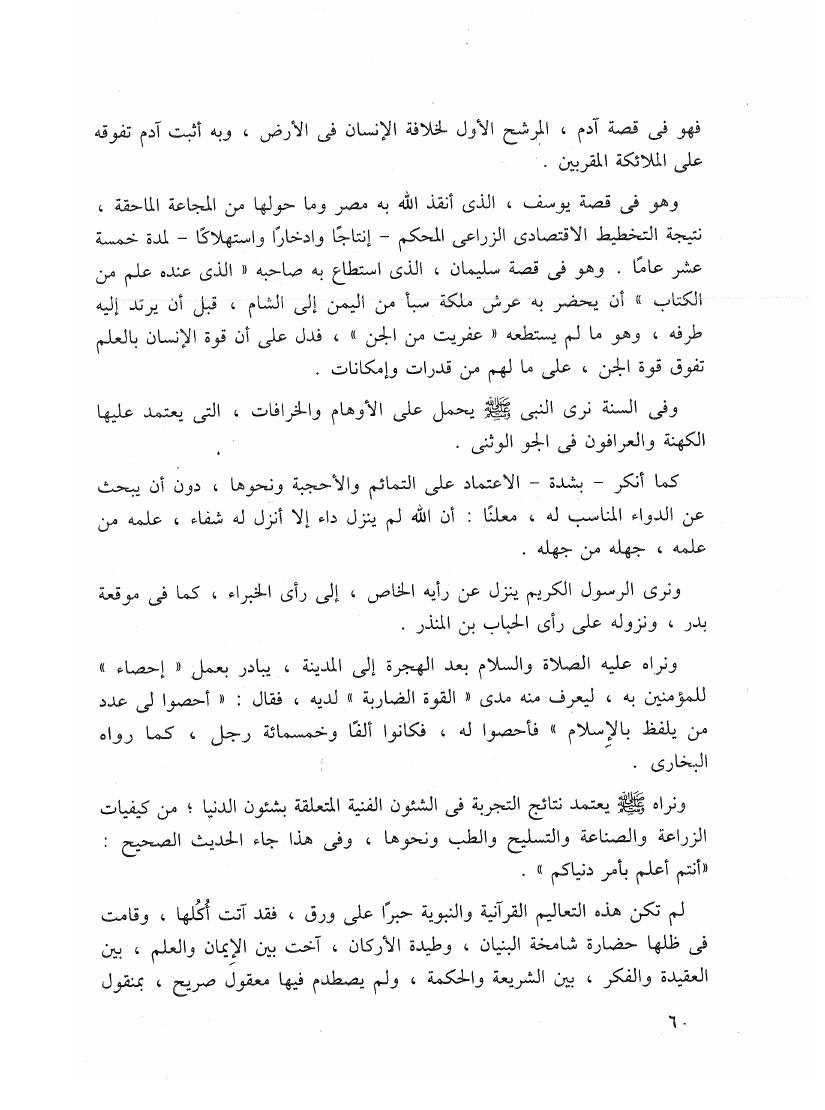 فهو فى قصة آدم ، المرشح الأول لخلافة الإنسان فى الأرض ، وبه أثبت آدم تفوقه
على الملائكة المقربين .
وهو فى قصة يوسف ، الذى أنقذ الله به مصر وما حولها من المجاعة الماحقة ،
نتيجة التخطيط الاقتصادى الزراعى المحكم – إنتاجًا وادخارًا واستهلاكًا – لمدة خمسة
عشر عامًا . وهو فى قصة سليمان ، الذى استطاع به صاحبه « الذى عنده علم من
الكتاب » أن يحضر به عرش ملكة سبأ من اليمن إلى الشام ، قبل أن يرتد إليه
طرفه ، وهو ما لم يستطعه « عفريت من الجن » ، فدل على أن قوة الإنسان بالعلم
تفوق قوة الجن ، على ما لهم من قدرات وإمكانات .
وفى السنة نرى النبى ﷺ يحمل على الأوهام والخرافات ، التى يعتمد عليها
الكهنة والعرافون فى الجو الوثنى .
كما أنكر – بشدة – الاعتماد على التمائم والأحجبة ونحوها ، دون أن يبحث
عن الدواء المناسب له ، معلنًا : أن الله لم ينزل داء إلا أنزل له شفاء ، علمه من
علمه ، جهله من جهله .
ونرى الرسول الكريم ينزل عن رأيه الخاص ، إلى رأى الخبراء ، كما فى موقعة
بدر ، ونزوله على رأى الحباب بن المنذر .
ونراه عليه الصلاة والسلام بعد الهجرة إلى المدينة ، يبادر بعمل « إحصاء »
للمؤمنين به ، ليعرف منه مدى « القوة الضاربة » لديه ، فقال : « أحصوا لى عدد
من يلفظ بالإِسلام » فأحصوا له ، فكانوا ألفًا وخمسمائة رجل ، كما رواه
البخارى .
ونراه ﷺ يعتمد نتائج التجربة فى الشئون الفنية المتعلقة بشئون الدنيا ؛ من كيفيات
الزراعة والصناعة والتسليح والطب ونحوها ، وفى هذا جاء الحديث الصحيح :
«أنتم أعلم بأمر دنياكم » .
لم تكن هذه التعاليم القرآنية والنبوية حبرًا على ورق ، فقد آتت أُكُلها ، وقامت
فى ظلها حضارة شامخة البنيان ، وطيدة الأركان ، آخت بين الإِيمان والعلم ، بين
العقيدة والفكر ، بين الشريعة والحكمة ، ولم يصطدم فيها معقول صريح ، بمنقول
٦٠